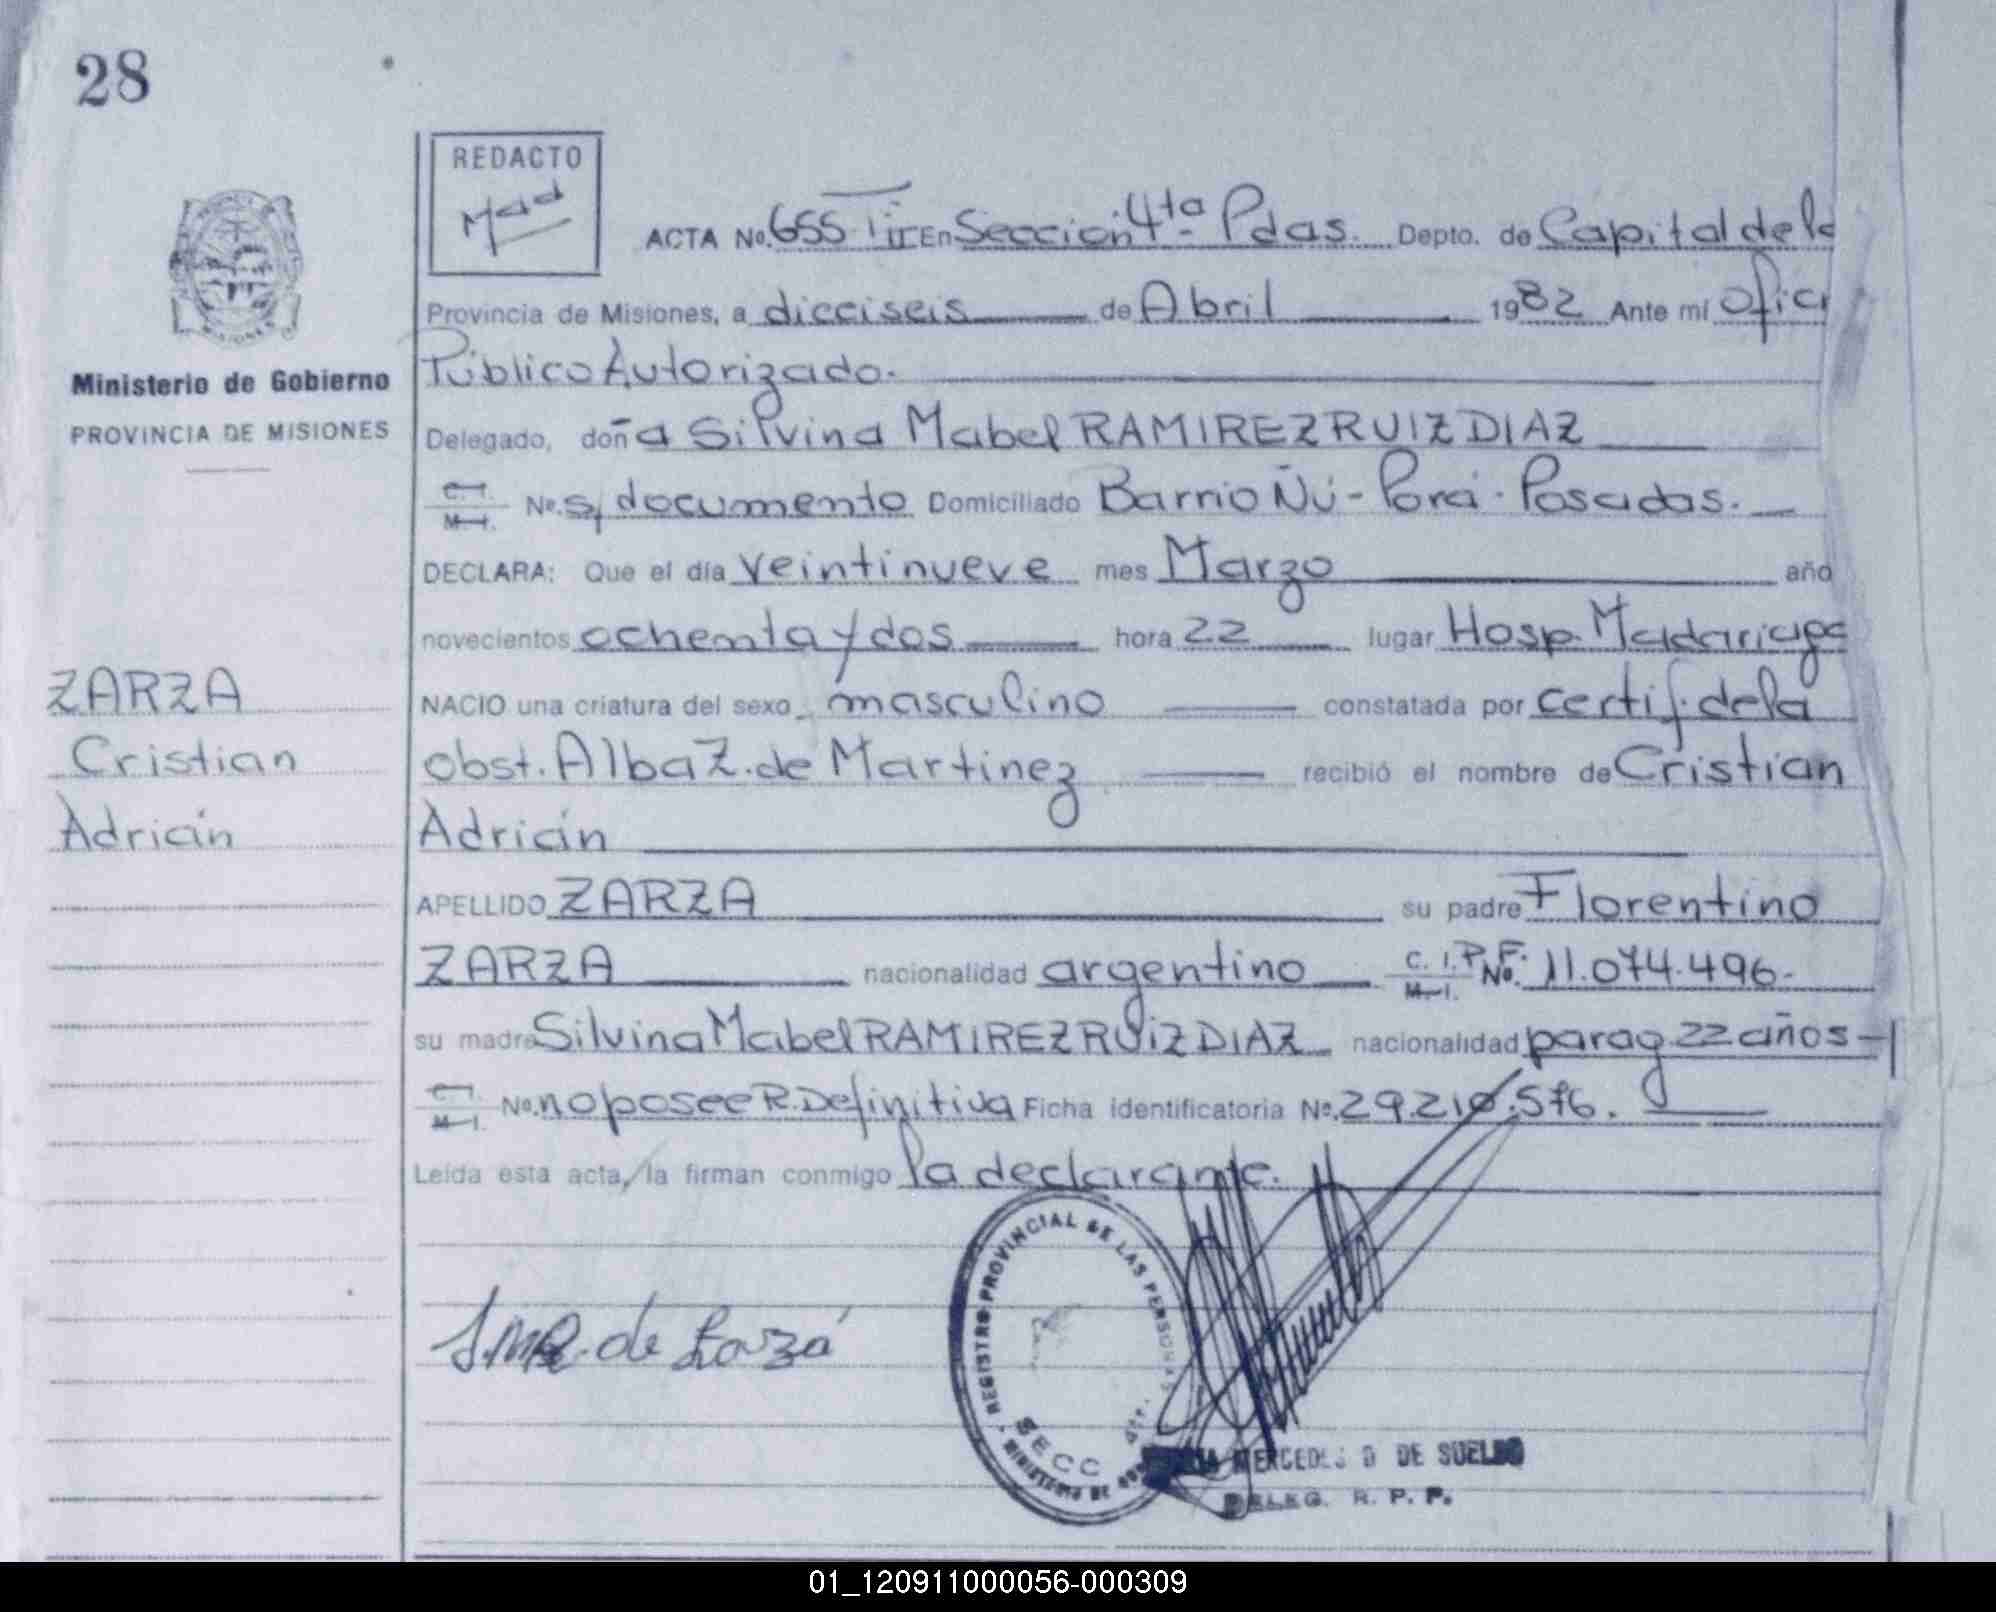 28
REDACTO
ACTA No. 655 En Sección 4ta Pdas. Depto. de Capital de la
Provincia de Misiones, a dieciseis de Abril 1982 Ante mí Ofici
Público Autorizado.
Ministerio de Gobierno
PROVINCIA DE MISIONES
Delegado, doña Silvina Mabel RAMIREZ RUIZ DIAZ
C.I. M.I. No. s/documento Domiciliado Barrio Ñú-Porá-Posadas.
DECLARA: Que el día veintinueve mes Marzo año
novecientos ochenta y dos hora 22 lugar Hosp. Madariaga
ZARZA
NACIO una criatura del sexo masculino constatada por certif. de la
Cristian
obst. Alba Z. de Martinez recibió el nombre de Cristian
Adrián
Adrián
APELLIDO ZARZA su padre Florentino
ZARZA nacionalidad argentino C.I.P.F. M.I. No. 11.074.496-
su madre Silvina Mabel RAMIREZ RUIZ DIAZ nacionalidad parag 22 años-
C.I. M.I. No. no posee R. Definitiva Ficha identificatoria No. 29.210.576.
Leída esta acta, la firman conmigo la declarante.
REGISTRO PROVINCIAL DE LAS PERSONAS
SECC
MINISTERIO DE
S.M.R. de
MERCEDES D DE SUELDO
DELEG. R. P. P.
01_120911000056-000309